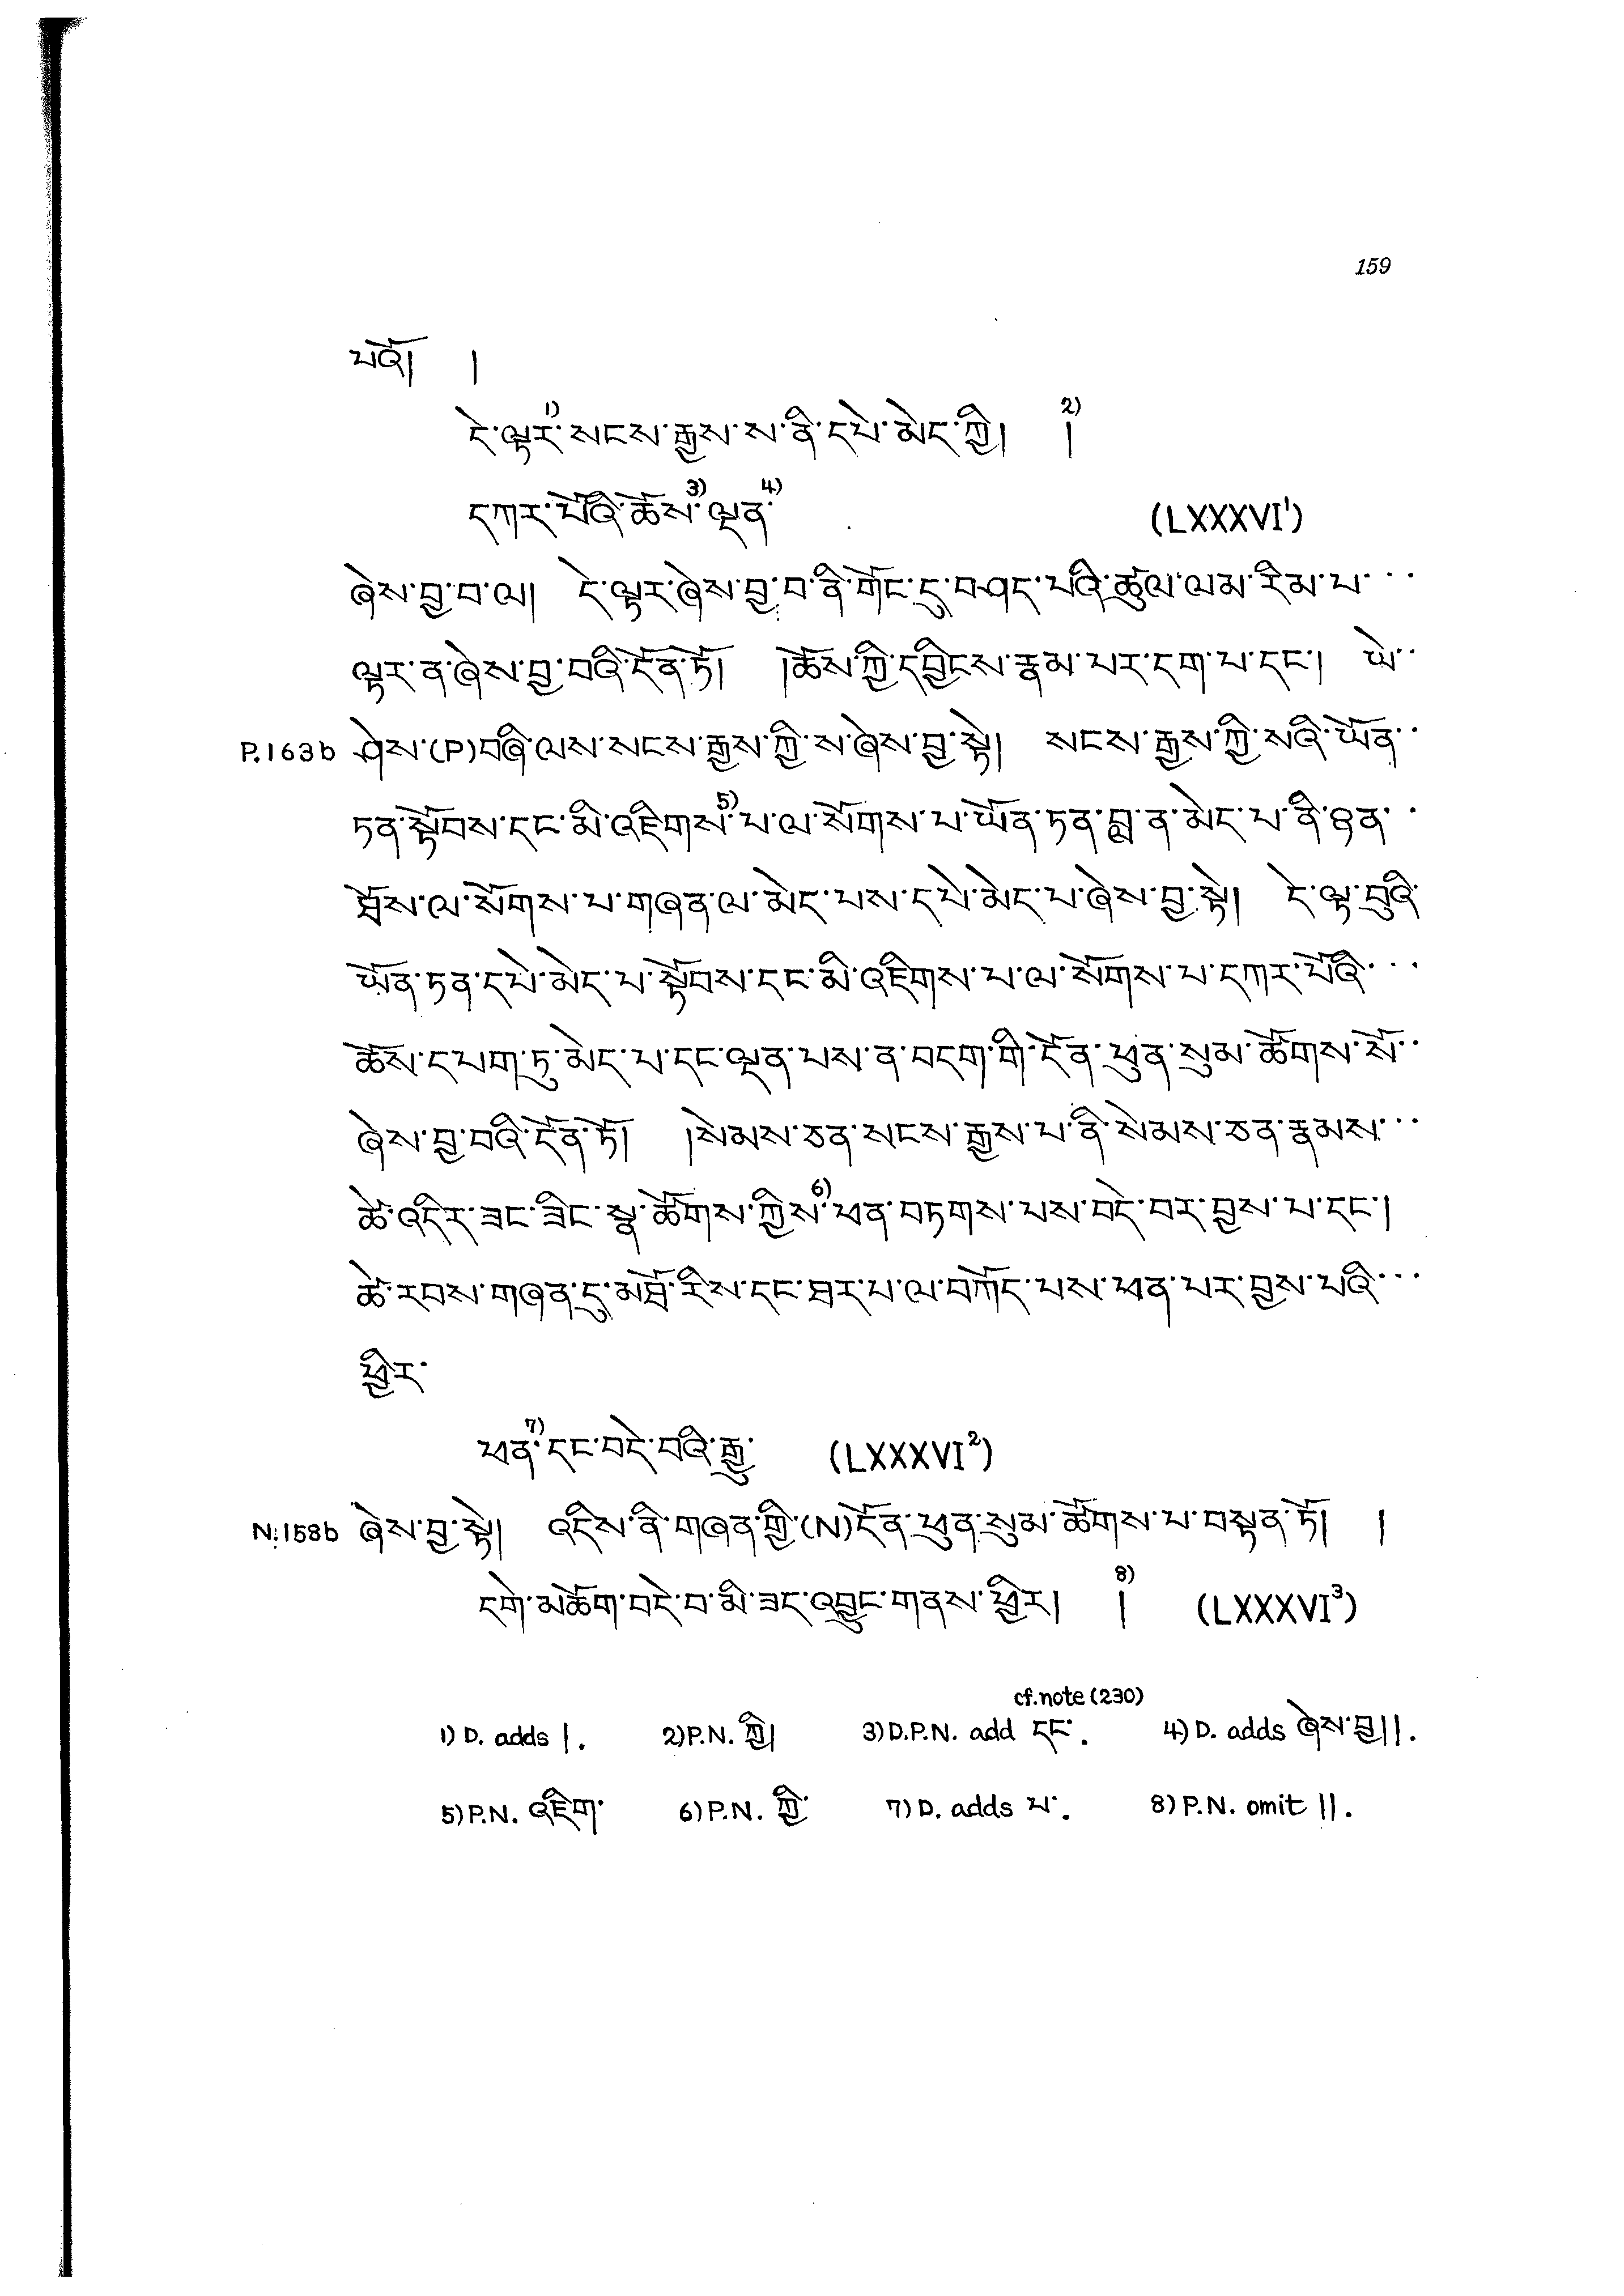 159
པའོ། །
དེ་ལྟར་1) སངས་རྒྱས་ས་ནི་དཔེ་མེད་ཀྱི། །2)
དཀར་པོའི་ཆོས་3) ལྡན་4) (LXXXVI1)
ཞེས་བྱ་བ་ལ། དེ་ལྟར་ཞེས་བྱ་བ་ནི་གོང་དུ་བཤད་པའི་ཚུལ་ལམ་རིམ་པ་···
ལྟར་ན་ཞེས་བྱ་བའི་དོན་ཏོ། །ཆོས་ཀྱི་དབྱིངས་རྣམ་པར་དག་པ་དང་། ཡེ་··
P.163b ཤེས་(P)བཞི་ལས་སངས་རྒྱས་ཀྱི་ས་ཞེས་བྱ་སྟེ། སངས་རྒྱས་ཀྱི་སའི་ཡོན་··
ཏན་སྟོབས་དང་མི་འཇིགས་5) པ་ལ་སོགས་པ་ཡོན་ཏན་བླ་ན་མེད་པ་ནི་ཉན་··
ཐོས་ལ་སོགས་པ་གཞན་ལ་མེད་པས་དཔེ་མེད་པ་ཞེས་བྱ་སྟེ། དེ་ལྟ་བུའི་
ཡོན་ཏན་དཔེ་མེད་པ་སྟོབས་དང་མི་འཇིགས་པ་ལ་སོགས་པ་དཀར་པོའི་···
ཆོས་དཔག་ཏུ་མེད་པ་དང་ལྡན་པས་ན་བདག་གི་དོན་ཕུན་སུམ་ཚོགས་སོ་··
ཞེས་བྱ་བའི་དོན་ཏོ། །སེམས་ཅན་སངས་རྒྱས་པ་ནི་སེམས་ཅན་རྣམས་···
ཚེ་འདིར་ཟང་ཟིང་སྣ་ཚོགས་ཀྱིས་6) ཕན་བཏགས་པས་བདེ་བར་བྱས་པ་དང་།
ཚེ་རབས་གཞན་དུ་མཐོ་རིས་དང་ཐར་པ་ལ་བཀོད་པས་ཕན་པར་བྱས་པའི་···
ཕྱིར་
ཕན་7) དང་བདེ་བའི་རྒྱུ་ (LXXXVI2)
N.158b ཞེས་བྱ་སྟེ། འདིས་ནི་གཞན་གྱི་(N)དོན་ཕུན་སུམ་ཚོགས་པ་བསྟན་ཏོ། །
དགེ་མཆོག་བདེ་བ་མི་ཟད་འབྱུང་གནས་ཕྱིར། །8) (LXXXVI3)
cf.note(230)
1) D. adds །. 2)P.N. ཀྱི། 3)D.P.N. add དང་. 4) D. adds ཞེས་བྱ།།.
5)P.N. འཇིག་ 6)P.N. ཀྱི་ 7)D. adds པ་. 8)P.N. omit །།.